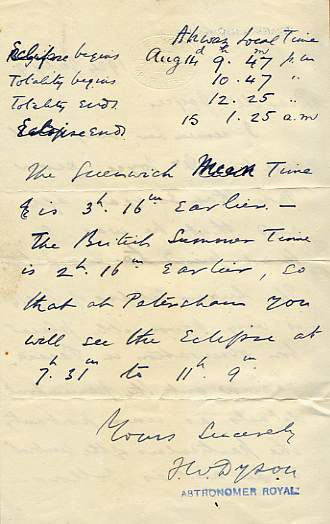 Ahwaz Local Time
Eclipse begins Aug 14d 9h. 47m p.m
Totality begins 10.47 "
Totality Ends 12.25 "
Eclipse Ends 15 1.25 a.m
The Greenwich Mean Time
is 3h. 16m Earlier. —
The British Summer Time
is 2h. 16m Earlier, so
that at Petersham you
will see the Eclipse at
7h. 31m to 11h. 9m.
Yours Sincerely
F.W. Dyson
ASTRONOMER ROYAL